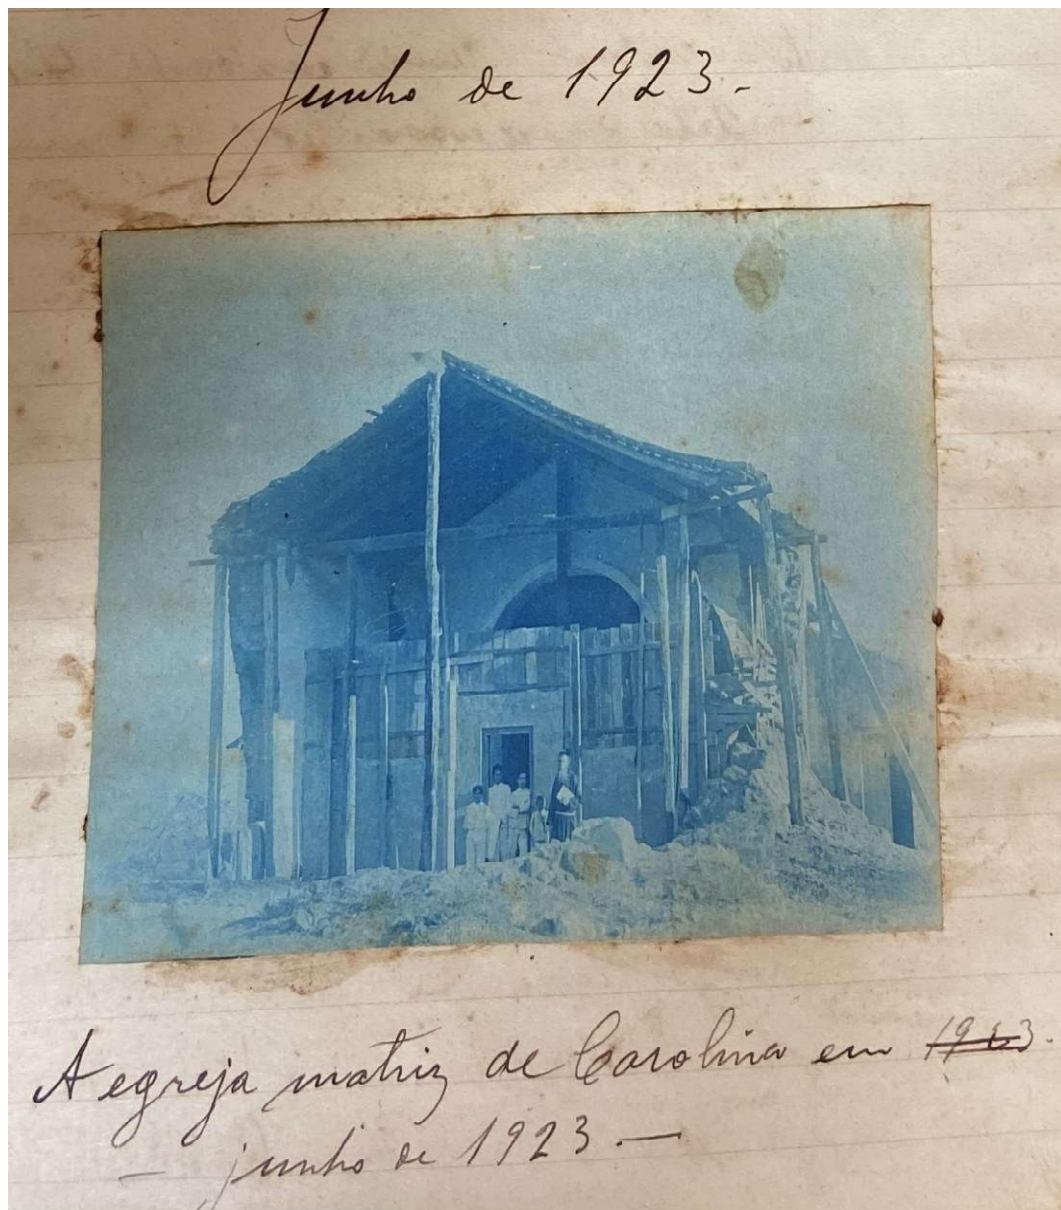 Junho de 1923.
A egreja matriz de Carolina em 1923.
— junho de 1923. —